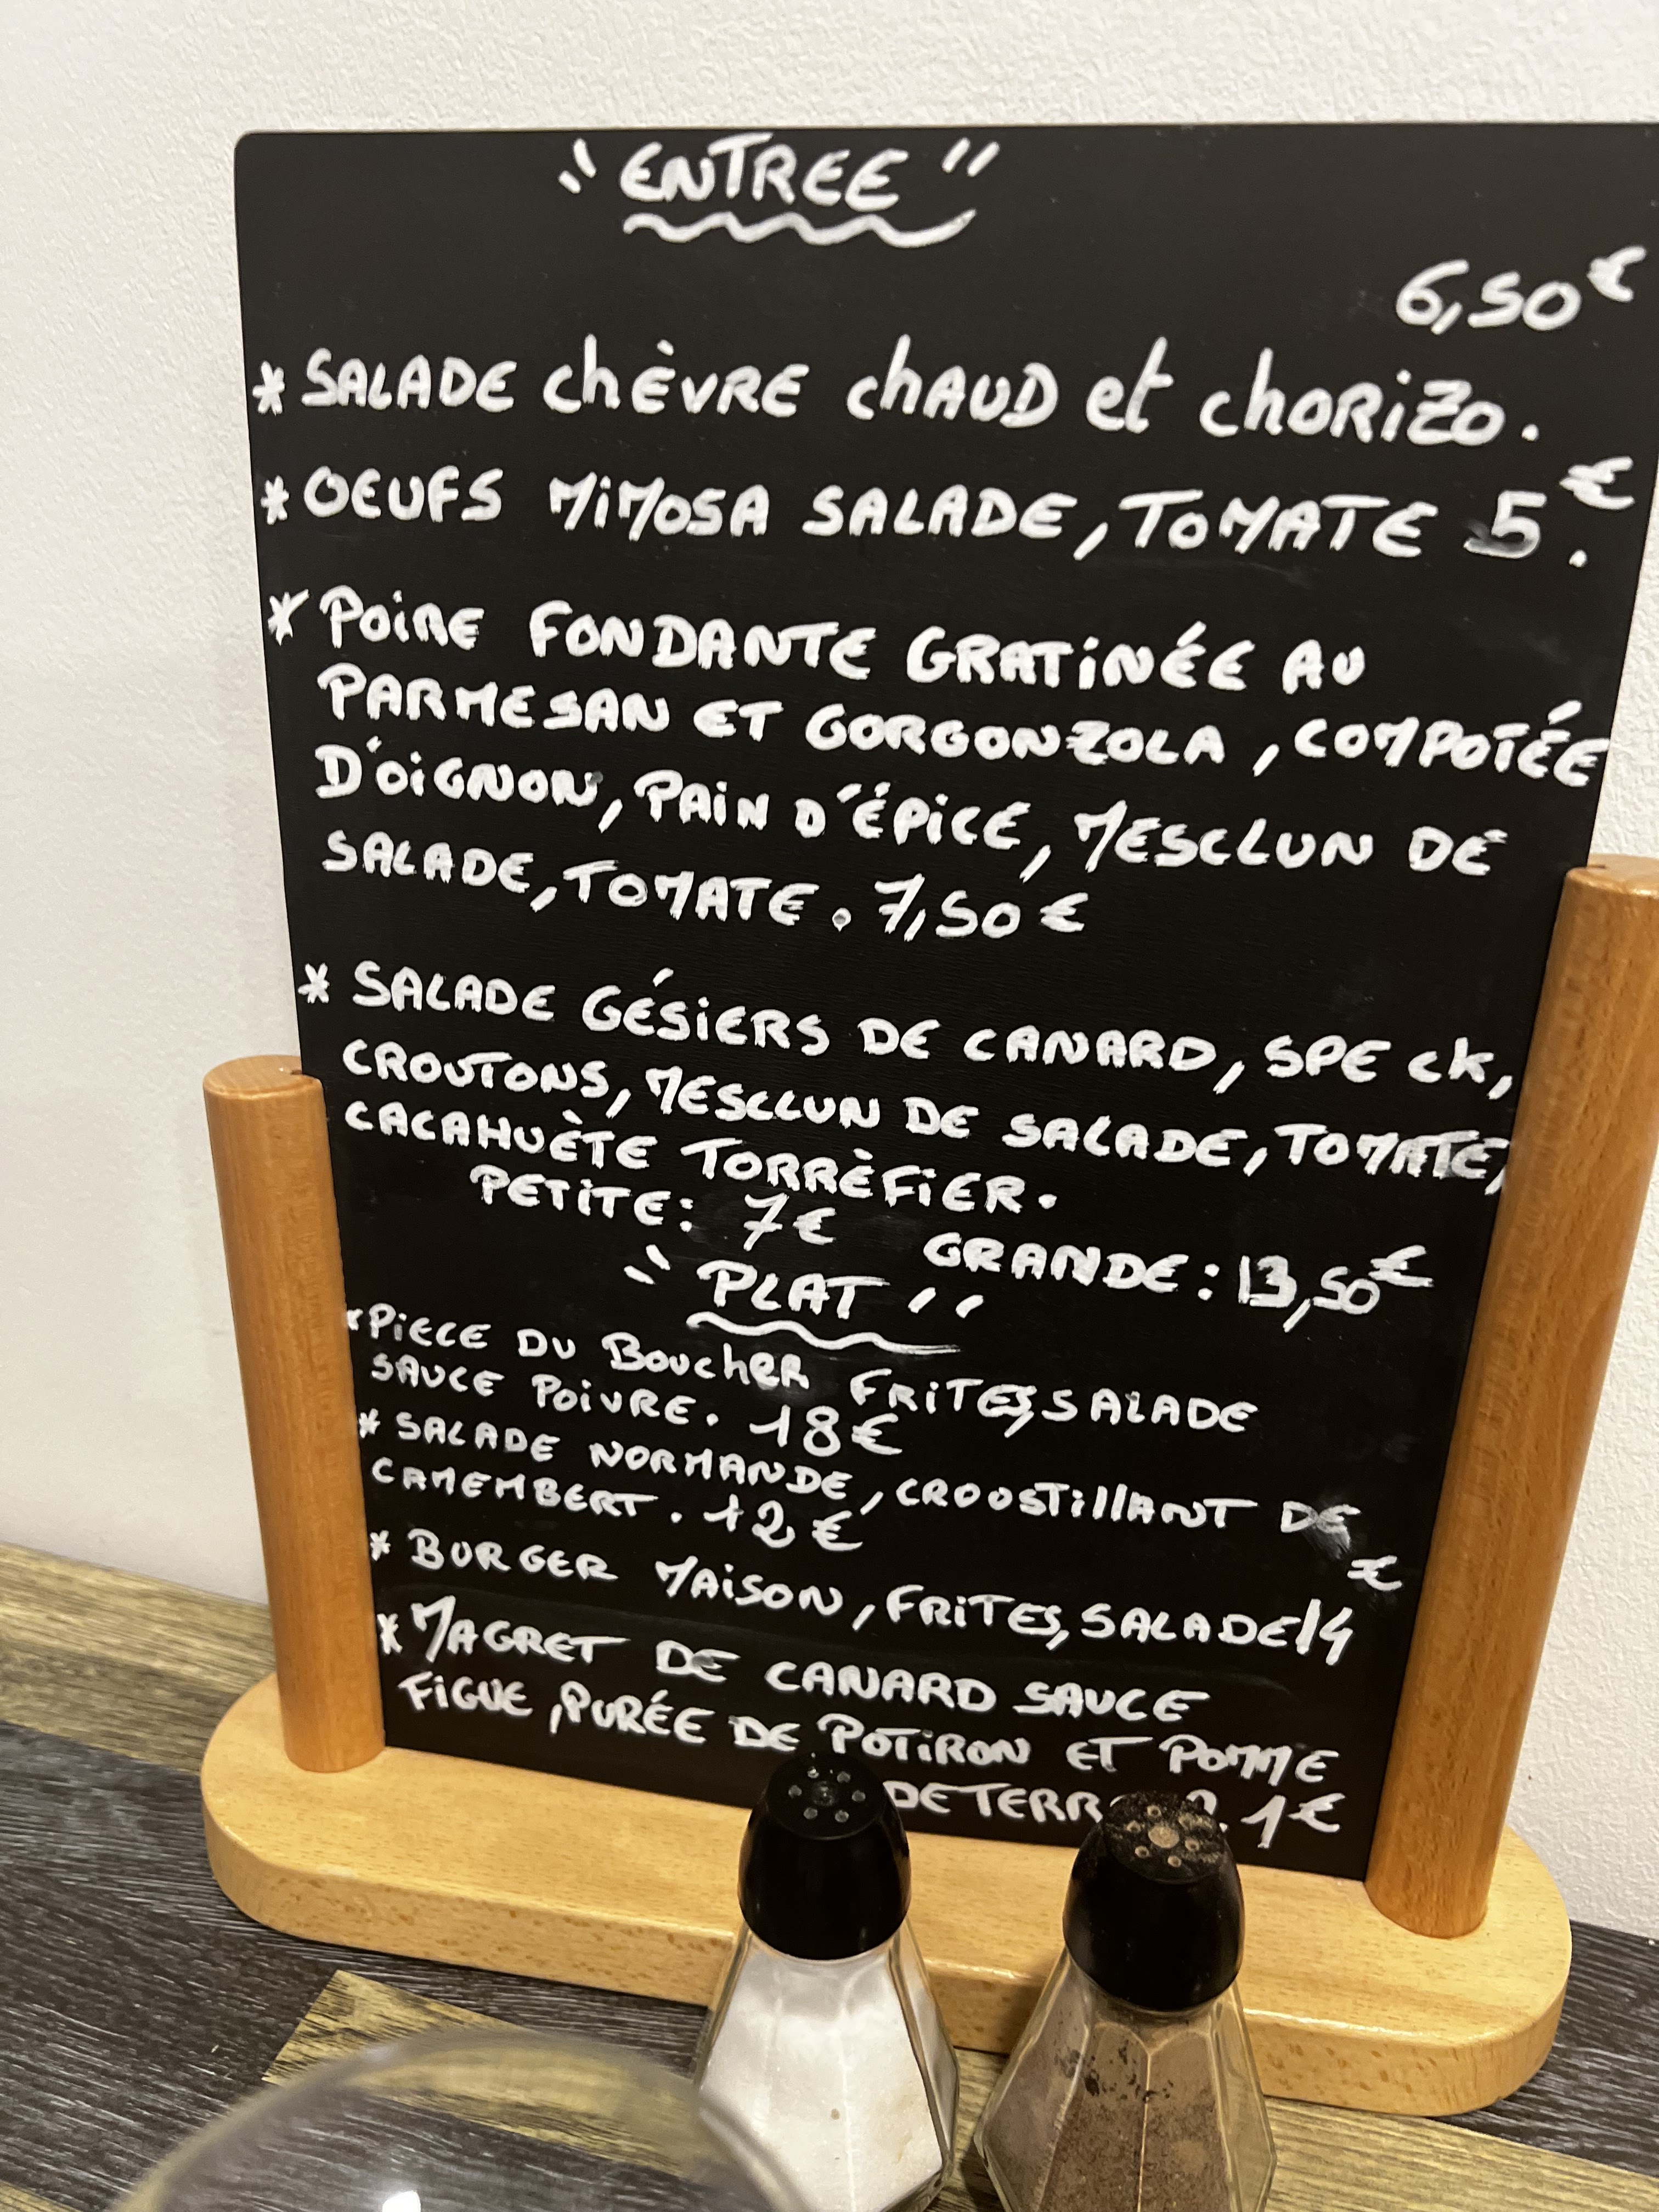 "ENTREE"
6,50€
* SALADE chÈVRE chAUD et chORiZO.
* OEUFS MiMOSA SALADE, TOMATE 5€.
* POiRE FONDANTE GRATiNÉE AU
PARMESAN ET GORGONZOLA, COMPOTÉE
D'OiGNON, PAiN D'ÉPiCE, MESCLUN DE
SALADE, TOMATE. 7,50€
* SALADE GÉSiERS DE CANARD, SPECK,
CROUTONS, MESCLUN DE SALADE, TOMATE,
CACAHUÈTE TORRÈFiER.
PETiTE: 7€ GRANDE: 13,50€
"PLAT"
* PiECE DU BOUChER FRiTES, SALADE
SAUCE POiVRE. 18€
* SALADE NORMANDE, CROOSTillANT DE
CAMEMBERT. 12€
* BURGER MAiSON, FRiTES, SALADE 14€
* MAGRET DE CANARD SAUCE
FiGUE, PURÉE DE POTiRON ET POMME
DE 1€